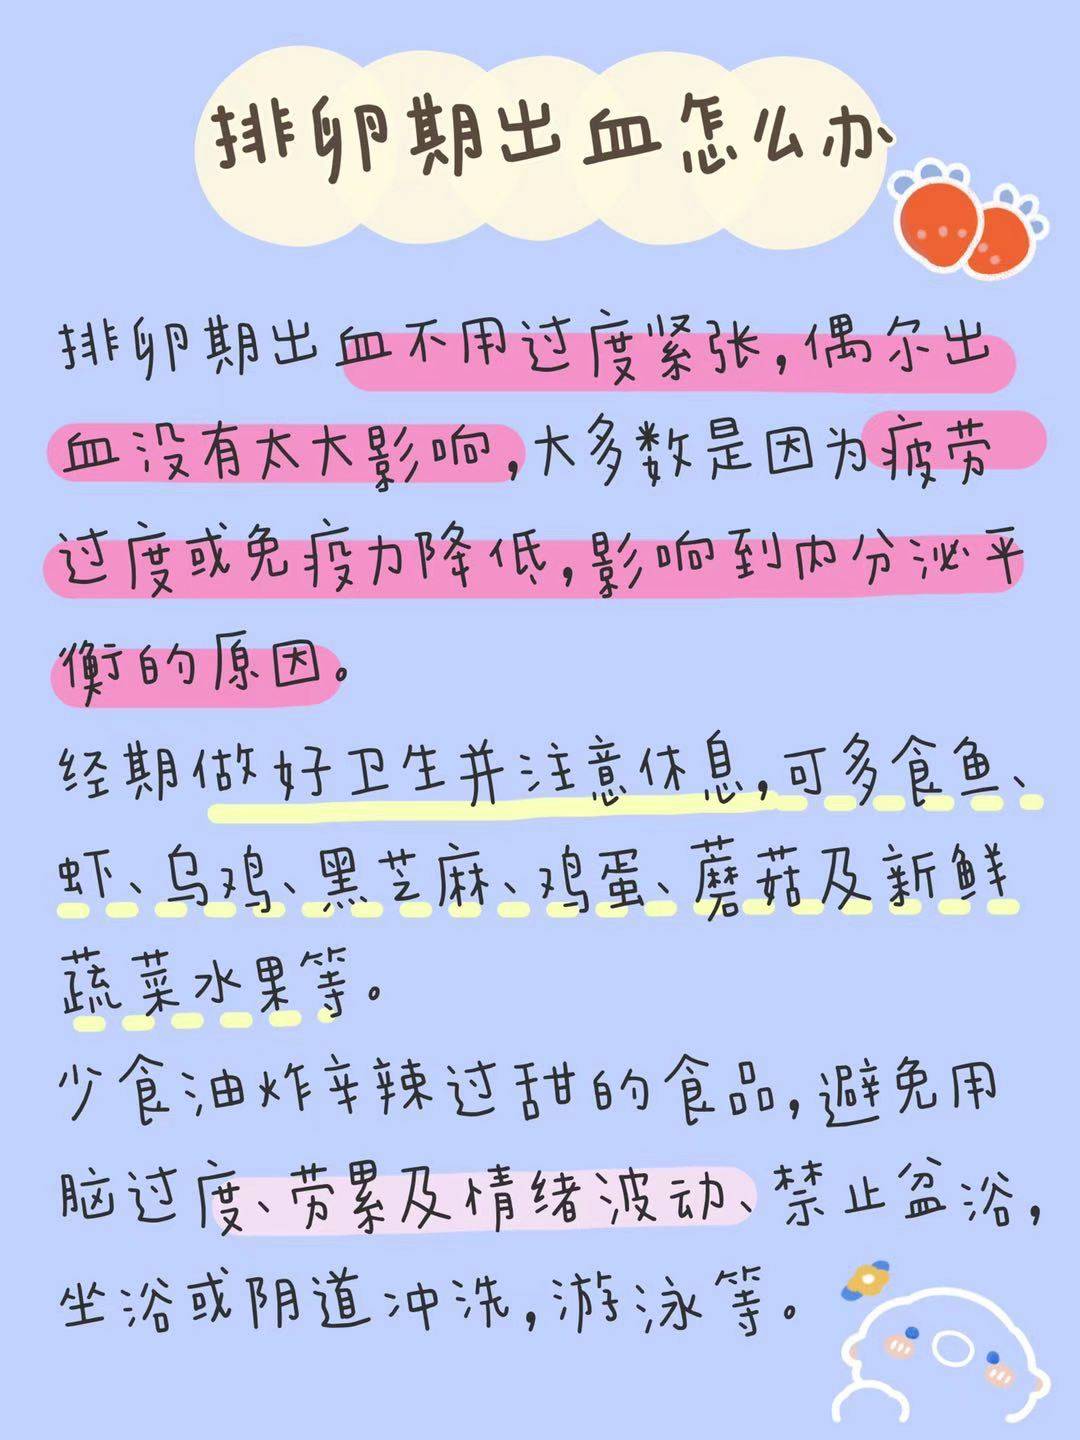 排卵期出血怎么办
排卵期出血不用过度紧张,偶尔出
血没有太大影响,大多数是因为疲劳
过度或免疫力降低,影响到内分泌平
衡的原因。
经期做好卫生并注意休息,可多食鱼、
虾、乌鸡、黑芝麻、鸡蛋、蘑菇及新鲜
蔬菜水果等。
少食油炸辛辣过甜的食品,避免用
脑过度、劳累及情绪波动、禁止盆浴,
坐浴或阴道冲洗,游泳等。